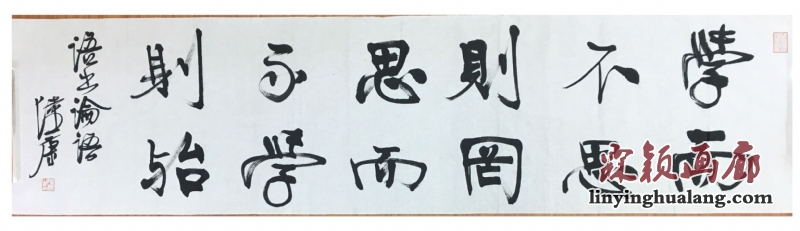 學而
不思
則罔
思而
不學
則殆
语出论语
霖颖画廊
linyinghualang.com